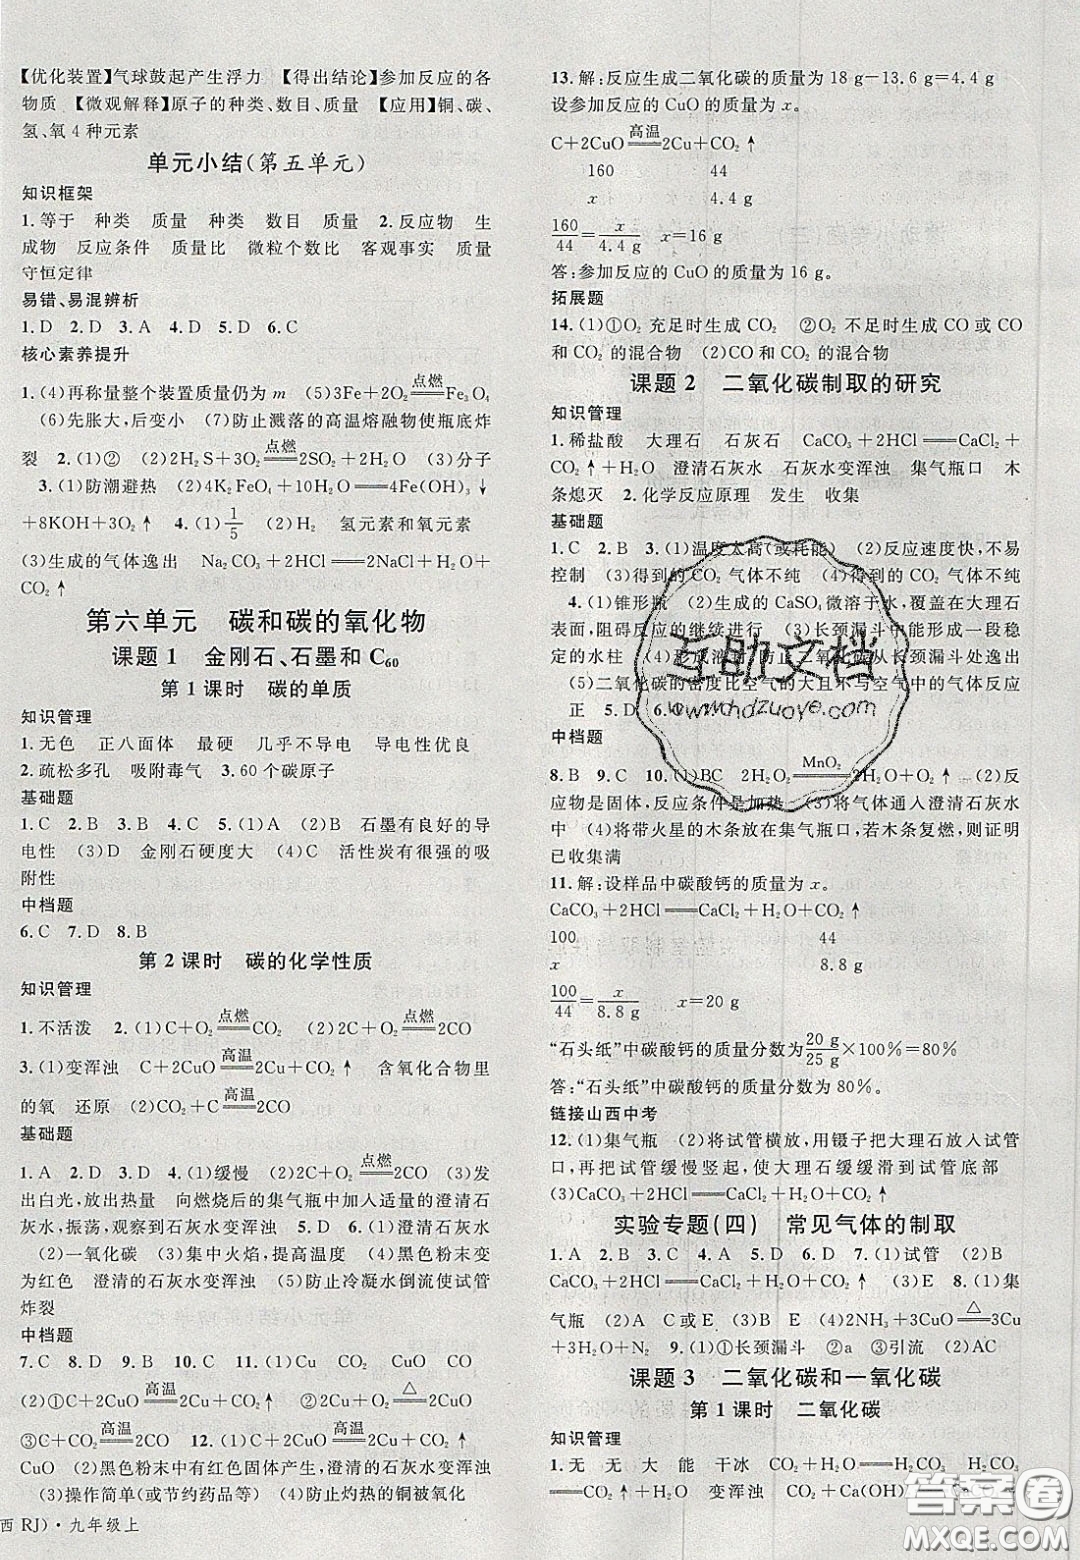 【优化装置】气球鼓起产生浮力　【得出结论】参加反应的各
物质　【微观解释】原子的种类、数目、质量　【应用】铜、碳、
氢、氧 4 种元素
单元小结(第五单元)
知识框架
1. 等于　种类　质量　种类　数目　质量　2. 反应物　生
成物　反应条件　质量比　微粒个数比　客观事实　质量
守恒定律
易错、易混辨析
1. D　2. D　3. A　4. D　5. D　6. C
核心素养提升
1. (4)再称量整个装置质量仍为 m　(5)3Fe＋2O₂ 点燃══ Fe₃O₄
(6)先胀大,后变小　(7)防止溅落的高温熔融物使瓶底炸
裂　2. (1)②　(2)2H₂S＋3O₂ 点燃══ 2SO₂＋2H₂O　(3)分子
3. (1)防潮避热　(2)4K₂FeO₄＋10H₂O══4Fe(OH)₃↓
＋8KOH＋3O₂↑　4. (1)1/5　(2)H₂　氢元素和氧元素
(3)生成的气体逸出　Na₂CO₃＋2HCl══2NaCl＋H₂O＋
CO₂↑
第六单元　碳和碳的氧化物
课题 1　金刚石、石墨和 C₆₀
第 1 课时　碳的单质
知识管理
1. 无色　正八面体　最硬　几乎不导电　导电性优良
2. 疏松多孔　吸附毒气　3. 60 个碳原子
基础题
1. C　2. B　3. D　4. B　5. (1)A　(2)B　石墨有良好的导
电性　(3)D　金刚石硬度大　(4)C　活性炭有很强的吸
附性
中档题
6. C　7. D　8. B
第 2 课时　碳的化学性质
知识管理
1. 不活泼　2. (1)C＋O₂ 点燃══ CO₂　(2)2C＋O₂ 点燃══ 2CO
3. (1)变浑浊　C＋2CuO 高温══ 2Cu＋CO₂↑　含氧化合物里
的氧　还原　(2)CO₂＋C 高温══ 2CO
基础题
1. A　2. D　3. B　4. (1)缓慢　(2)2C＋O₂ 点燃══ 2CO　(3)发
出白光,放出热量　向燃烧后的集气瓶中加入适量的澄清石
灰水,振荡,观察到石灰水变浑浊　5. D　6. (1)澄清石灰水
(2)一氧化碳　(3)集中火焰,提高温度　(4)黑色粉末变
为红色　澄清的石灰水变浑浊　(5)防止冷凝水倒流使试管
炸裂
中档题
7. C　8. D　9. B　10. C　11. (1)C　Cu　CO₂　CO　CuO
(2)①C＋2CuO 高温══ 2Cu＋CO₂↑　②2Cu＋O₂ △══ 2CuO
③C＋CO₂ 高温══ 2CO　12. (1)C＋2CuO 高温══ 2Cu＋CO₂↑
CuO　(2)黑色粉末中有红色固体产生,澄清石灰水变浑浊
(3)操作简单(或节约药品等)　(4)防止灼热的铜被氧化
西 RJ)·九年级上
13. 解：反应生成二氧化碳的质量为 18 g－13.6 g＝4.4 g
设参加反应的 CuO 的质量为 x。
C＋2CuO 高温══ 2Cu＋CO₂↑
160　44
x　4.4 g
160/44＝x/4.4 g　x＝16 g
答：参加反应的 CuO 的质量为 16 g。
拓展题
14. (1)①O₂ 充足时生成 CO₂　②O₂ 不足时生成 CO 或 CO
和 CO₂ 的混合物　(2)CO 和 CO₂ 的混合物
课题 2　二氧化碳制取的研究
知识管理
1. 稀盐酸　大理石　石灰石　CaCO₃＋2HCl══CaCl₂＋
CO₂↑＋H₂O　澄清石灰水　石灰水变浑浊　集气瓶口　木
条熄灭　2. 化学反应原理　发生　收集
基础题
1. C　2. B　3. (1)温度太高(或耗能)　(2)反应速度快,不易
控制　(3)得到的 CO₂ 气体不纯　(4)CO₂ 气体不纯
4. (1)锥形瓶　(2)生成的 CaSO₄ 微溶于水,覆盖在大理石
表面,阻碍反应的继续进行　(3)长颈漏斗中形成一段稳定
的水柱　(4)防止反应生成的二氧化碳从长颈漏斗处逸出
(5)二氧化碳的密度比空气的大且不与空气中的气体反应
正　5. D　6.
中档题
8. B　9. C　10. (1)BC　2H₂O₂ MnO₂══ 2H₂O＋O₂↑　(2)反
应物是固体,反应条件是加热　(3)将气体通入澄清石灰水
中　(4)将带火星的木条放在集气瓶口,若木条复燃,则证明
已收集满
11. 解：设样品中碳酸钙的质量为 x。
CaCO₃＋2HCl══CaCl₂＋H₂O＋CO₂↑
100　44
x　8.8 g
100/44＝x/8.8 g　x＝20 g
“石头纸”中碳酸钙的质量分数为20 g/25 g×100%＝80%
答：“石头纸”中碳酸钙的质量分数为 80%。
链接山西中考
12. (1)集气瓶　(2)将试管横放,用镊子把大理石放入试管
口,将试管缓慢竖起,使大理石缓缓滑到试管底部
(3)CaCO₃＋2HCl══CaCl₂＋H₂O＋CO₂↑
实验专题(四)　常见气体的制取
1. A　2. B　3. C　4. A　5. D　6. D　7. (1)试管　(2)B
CaCO₃＋2HCl══CaCl₂＋H₂O＋CO₂↑　(3)E　8. (1)集
气瓶　(2)A　C或E　(3)B　E　(4)2NH₃＋3CuO △══ 3Cu
＋3H₂O＋N₂　9. (1)长颈漏斗　②a　③引流　(2)AC
课题 3　二氧化碳和一氧化碳
第 1 课时　二氧化碳
知识管理
1. 无　无　大　能　干冰　CO₂＋H₂O══H₂CO₃　H₂CO₃
互助文档
www.hdzuoye.com
答案圈
MXQE.COM